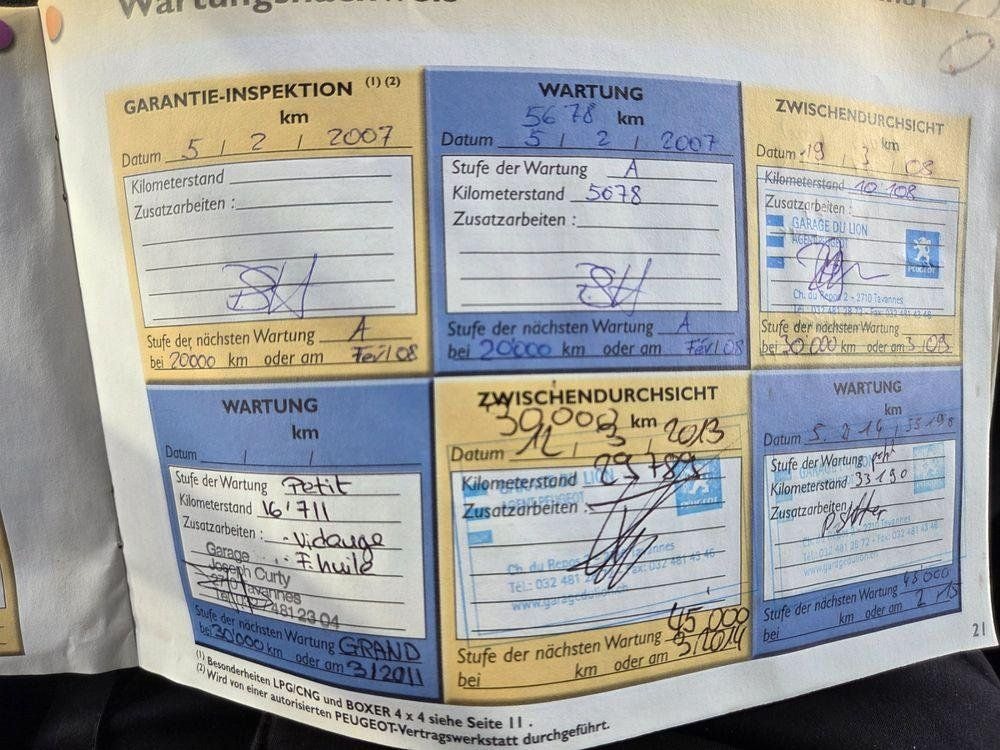 Wartungsnachweis
GARANTIE-INSPEKTION (1) (2)
km
Datum 5 / 2 / 2007
Kilometerstand
Zusatzarbeiten :
Stufe der nächsten Wartung A
bei 20000 km oder am Fév/08
WARTUNG
5678 km
Datum 5 / 2 / 2007
Stufe der Wartung A
Kilometerstand 5678
Zusatzarbeiten :
Stufe der nächsten Wartung A
bei 20'000 km oder am Fév/08
ZWISCHENDURCHSICHT
km
Datum 19 / 3 / 08
Kilometerstand 10'108
Zusatzarbeiten :
GARAGE DU LION
AGENT PEUGEOT
PEUGEOT
Ch. du Repos 2 - 2710 Tavannes
Stufe der nächsten Wartung
bei 30'000 km oder am 3/09
WARTUNG
km
Datum / /
Stufe der Wartung Petit
Kilometerstand 16'711
Zusatzarbeiten : - Vidange
- F. huile
Garage
Joseph Curty
2710 Tavannes
481 23 04
Stufe der nächsten Wartung GRAND
bei 30'000 km oder am 3/2011
ZWISCHENDURCHSICHT
30'000 km
Datum 12 / 3 / 2013
Kilometerstand 29'789
Zusatzarbeiten :
AGENT PEUGEOT
Ch. du Repos Tavannes
Tél.: 032 481 Fax: 032 481 43 46
www.garagedulion.ch
Stufe der nächsten Wartung 45'000
bei km oder am 3/2014
WARTUNG
km
Datum 5. 2 14 /
Stufe der Wartung
Kilometerstand 33190
Zusatzarbeiten
www.garagedulion.ch
Stufe der nächsten Wartung 45'000
bei km oder am 2 15
21
(1) Besonderheiten LPG/CNG und BOXER 4 x 4 siehe Seite 11 .
(2) Wird von einer autorisierten PEUGEOT-Vertragswerkstatt durchgeführt.